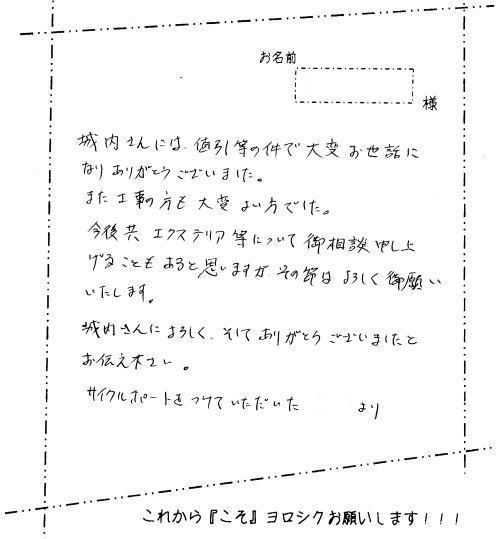 お名前
様
城内さんには、値引等の件で大変お世話に
なりありがとうございました。
また工事の方も大変よい方でした。
今後共エクステリア等について御相談申し上
げることもあると思いますが、その節はよろしく御願い
いたします。
城内さんによろしく、そしてありがとうございましたと
お伝え下さい。
サイクルポートをつけていただいた より
これから『こそ』ヨロシクお願いします！！！